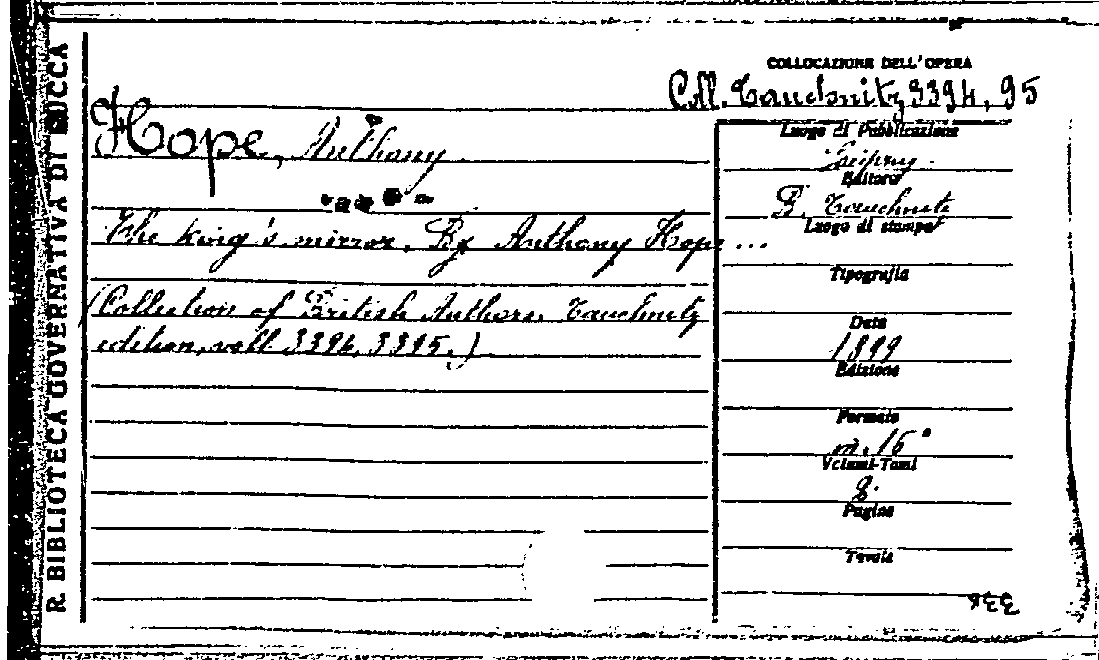 R. BIBLIOTECA GOVERNATIVA DI LUCCA
COLLOCAZIONE DELL'OPERA
Coll. Tauchnitz 3394, 95
Hope, Anthony
The king's mirror. By Anthony Hope ...
(Collection of British Authors. Tauchnitz
edition, voll. 3394, 3395.)
Luogo di Pubblicazione
Leipzig
Editore
B. Tauchnitz
Luogo di stampa
Tipografia
Data
1899
Edizione
Formato
m. 16°
Volumi-Tomi
2.
Pagine
Tavole